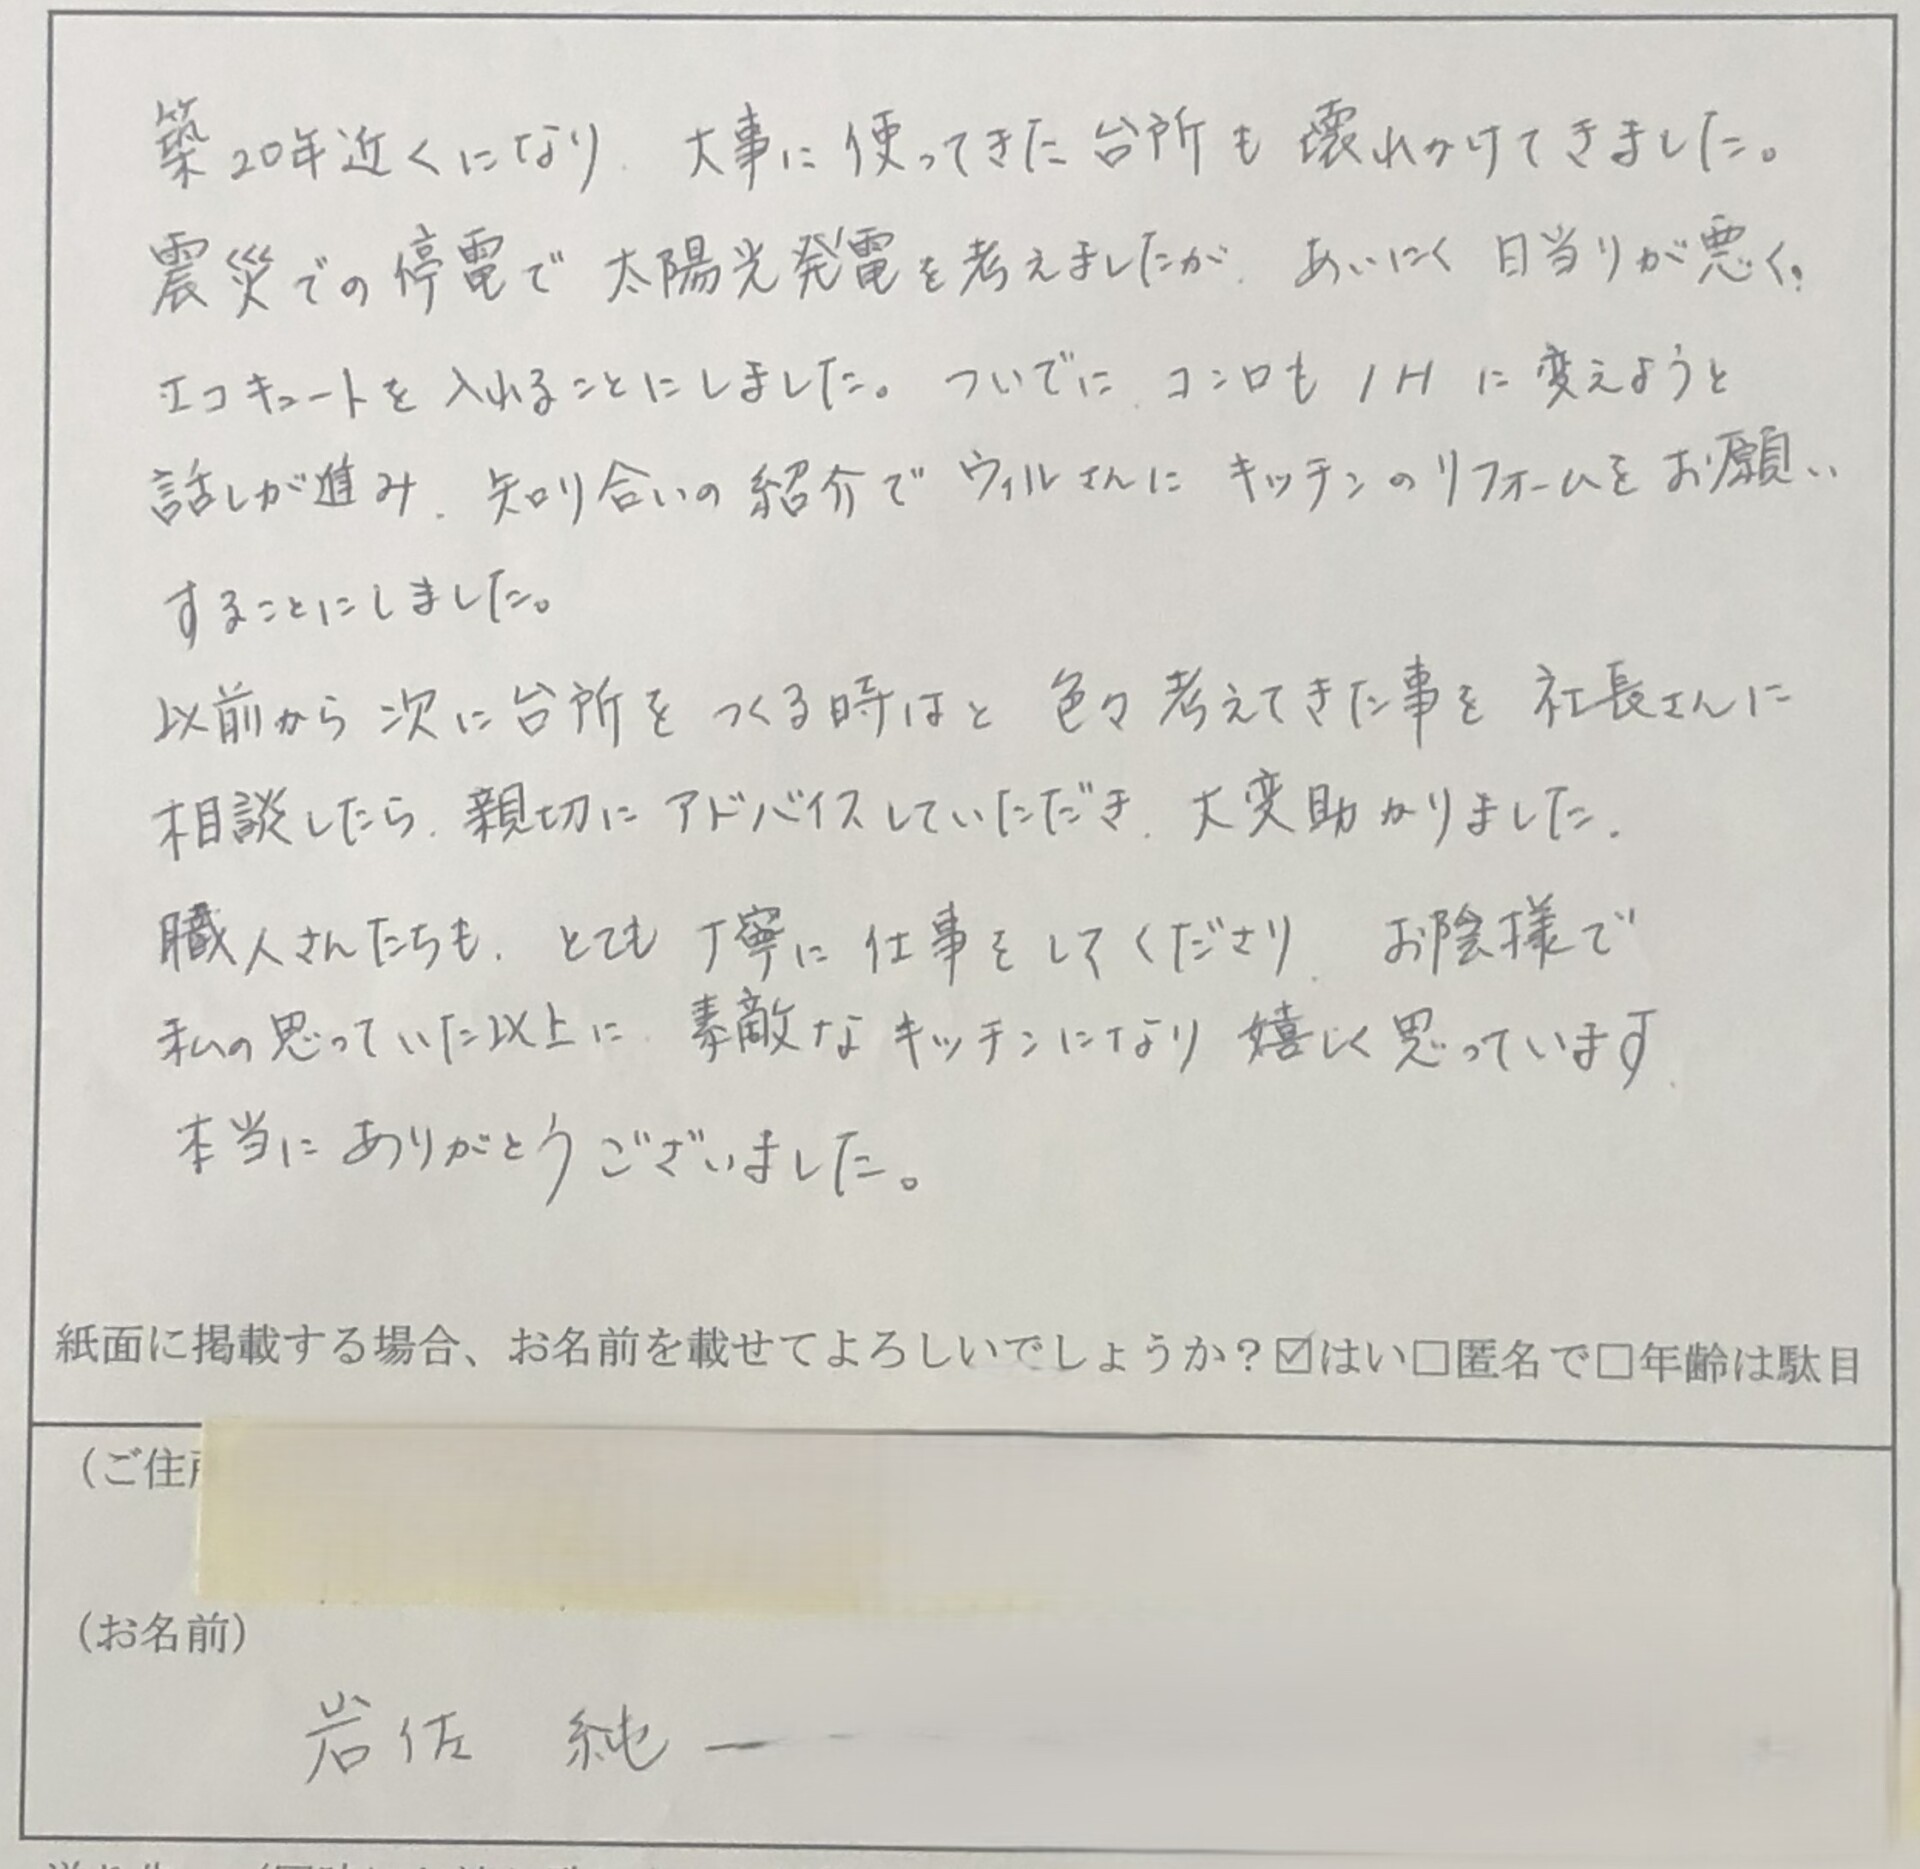 築20年近くになり、大事に使ってきた台所も壊れかけてきました。
震災での停電で太陽光発電を考えましたが、あいにく日当りが悪く、
エコキュートを入れることにしました。ついでに、コンロもIHに変えようと
話しが進み、知り合いの紹介でウィルさんにキッチンのリフォームをお願い
することにしました。
以前から次に台所をつくる時はと色々考えてきた事を社長さんに
相談したら、親切にアドバイスしていただき、大変助かりました。
職人さんたちも、とても丁寧に仕事をしてくださり、お陰様で
私の思っていた以上に、素敵なキッチンになり嬉しく思っています。
本当にありがとうございました。
紙面に掲載する場合、お名前を載せてよろしいでしょうか？☑はい□匿名で□年齢は駄目
（ご住
（お名前）
岩佐 純一